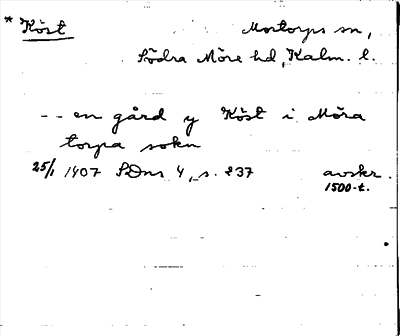 * Köst Mortorps sn,
Södra Möre hd, Kalm. l.
-- en gård y Köst i Möra
torpa sokn
25/1 1407 SDns 4, s. 837 avskr.
1500-t.